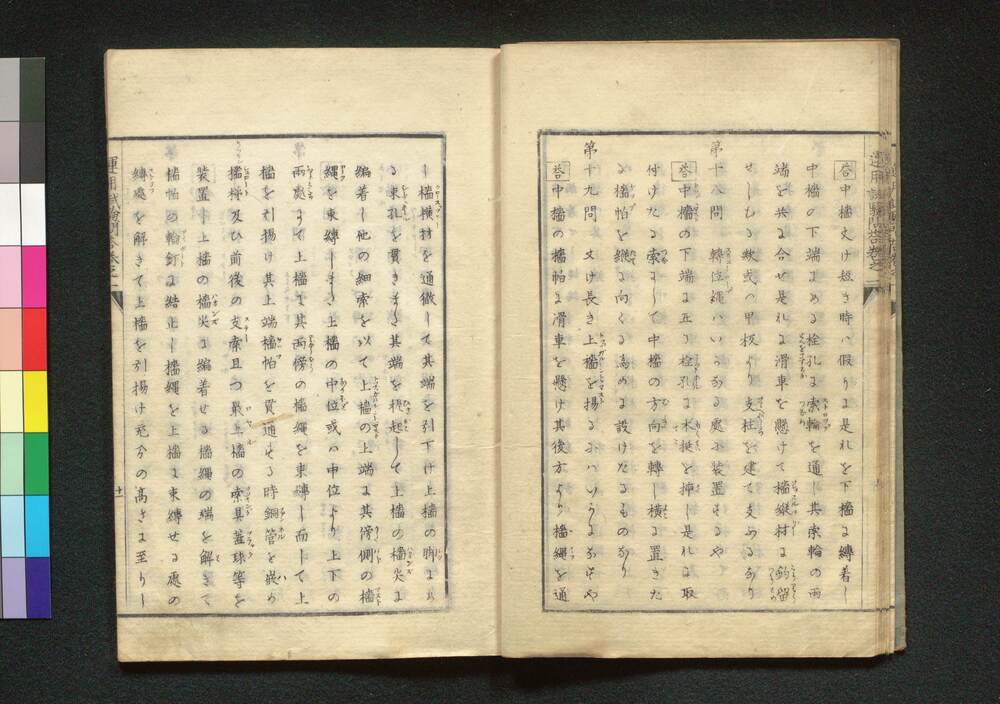 答 中檣丈け短き時ハ假りに是れを下檣に縛着し
中檣の下端なる栓孔に索輪を通し其索輪の両
端を共に合せ是れに滑車を懸けて檣縦材に鈎留
せしむる歟或ハ甲板より支柱を建て支ふるなり
第十八問 轉位繩ハいかなる處に装置せるや
答 中檣の下端に在る栓孔に木挺を挿し是れに取
付けたる索にして中檣の方向を轉し横に置きた
る檣帕を縦に向くる為めに設けたるものなり
第十九問 丈け長き上檣を揚るにハいかになすや
答 中檣の檣帕に滑車を懸け其後方より檣繩を通
し檣横材を通徹して其端を引下け上檣の脚に
る束孔を貫きまた其端を挽起して上檣の檣尖に
編着し他の細索を以て上檣の上端に其傍側の檣
繩を束縛しまた上檣の中位或ハ中位より上下の
両處にて上檣と其両傍の檣繩を束縛し而して上
檣を引揚け其上端檣帕を貫通せる時銅管を嵌め
檣桿及ひ前後の支索且つ最上檣の索具蓋球等を
装置し上檣の檣尖に編着せる檣繩の端を解きて
檣帕の輪釘に結止し檣繩を上檣に束縛せる處の
縛處を解きて上檣を引揚け充分の高さに至りし
十一